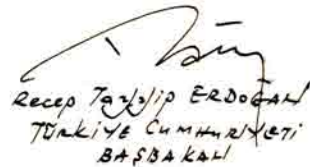 Recep Tayyip ERDOĞAN
TÜRKİYE CUMHURİYETİ
BAŞBAKAN